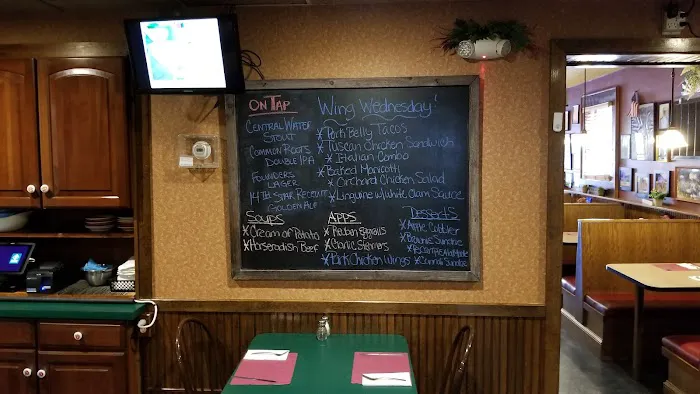 ON TAP
CENTRAL WATER
STOUT
COMMON ROOTS
DOUBLE IPA
FOUNDERS
LAGER
14TH STAR
GOLDEN ALE
Wing Wednesday!
*Pork Belly Tacos
*Tuscan Chicken Sandwich
*Italian Combo
*Baked Manicotti
*Orchard Chicken Salad
*Linguine w/ White Clam Sauce
Soups
*Cream of Potato
*Horseradish Beef
APPS
*Reuban Eggrolls
*Garlic Steamers
*Pork Chicken Wings
Desserts
*Apple Cobbler
*Brownie Sundae
*Cannoli Sundae